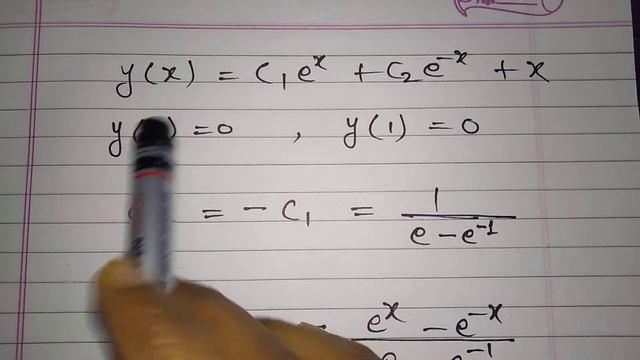 y(x) = C₁eˣ + C₂e⁻ˣ + x
y( ) = 0 , y(1) = 0
= - C₁ = 1 / (e - e⁻¹)
eˣ - e⁻ˣ / e⁻¹